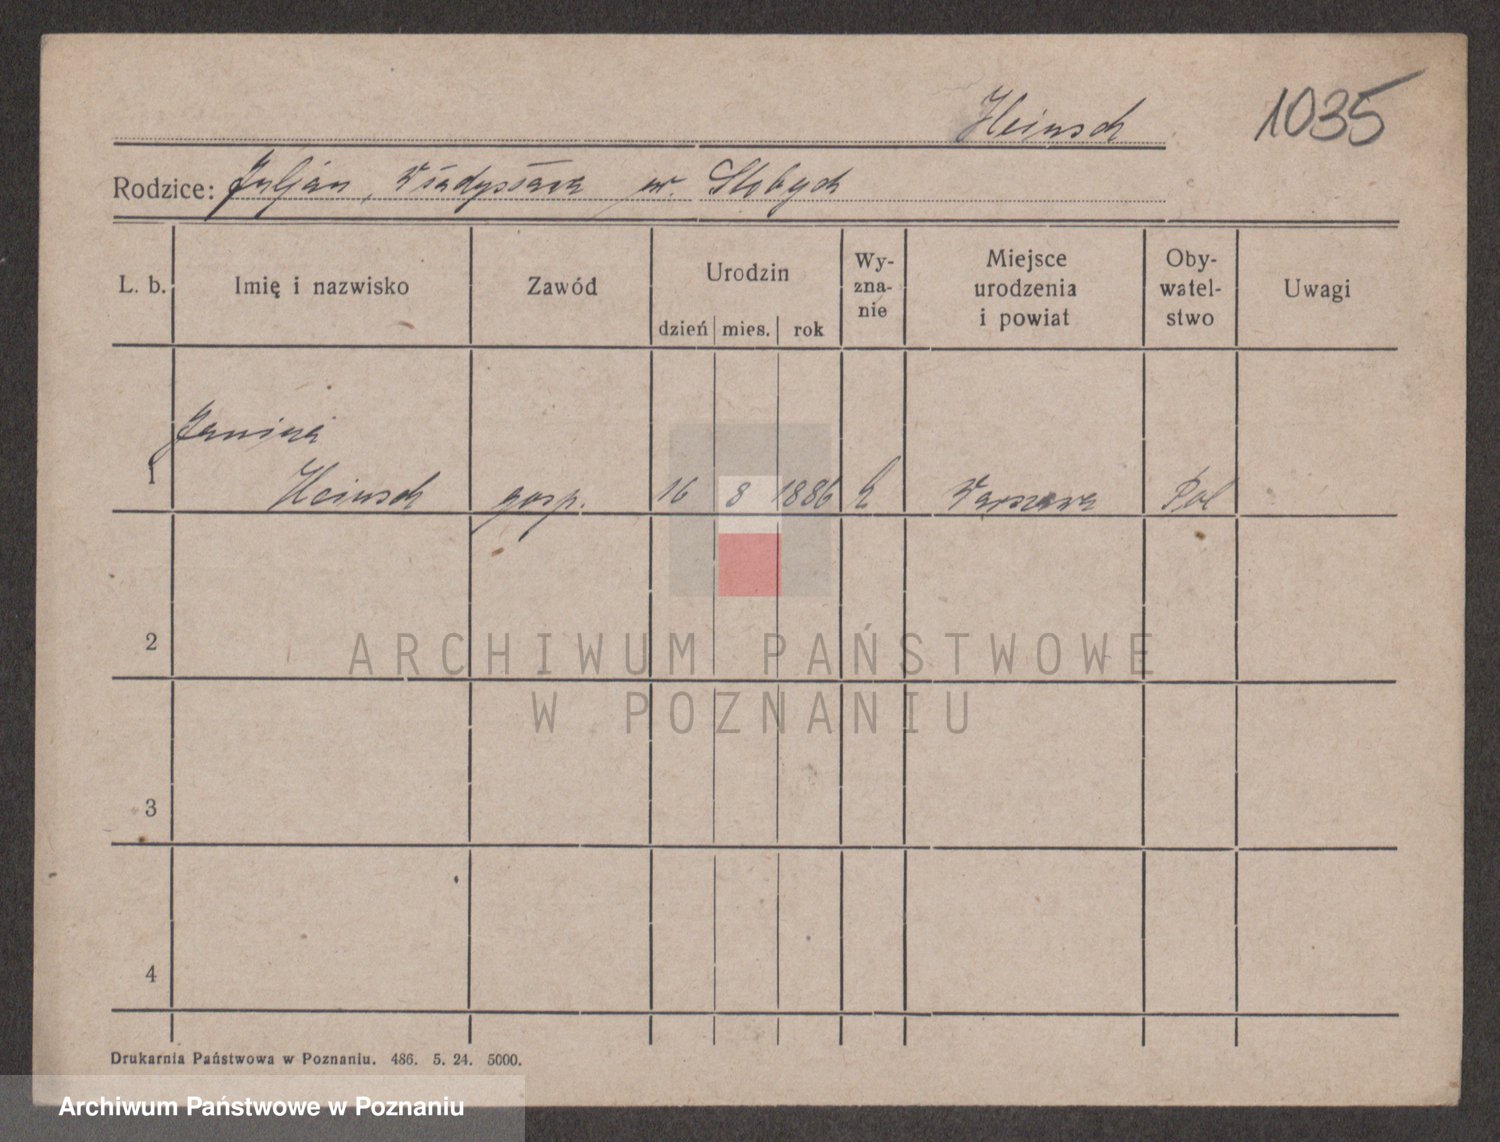 Heinsch
1035
Rodzice: Juljan, Władysława ur.
L. b.
Imię i nazwisko
Zawód
Urodzin
dzień
mies.
rok
Wy-
zna-
nie
Miejsce
urodzenia
i powiat
Oby-
watel-
stwo
Uwagi
Janina
1 Heinsch gosp. 16 8 1886 k Warszawa Pol
2
3
4
ARCHIWUM PAŃSTWOWE
W POZNANIU
Drukarnia Państwowa w Poznaniu. 486. 5. 24. 5000.
Archiwum Państwowe w Poznaniu